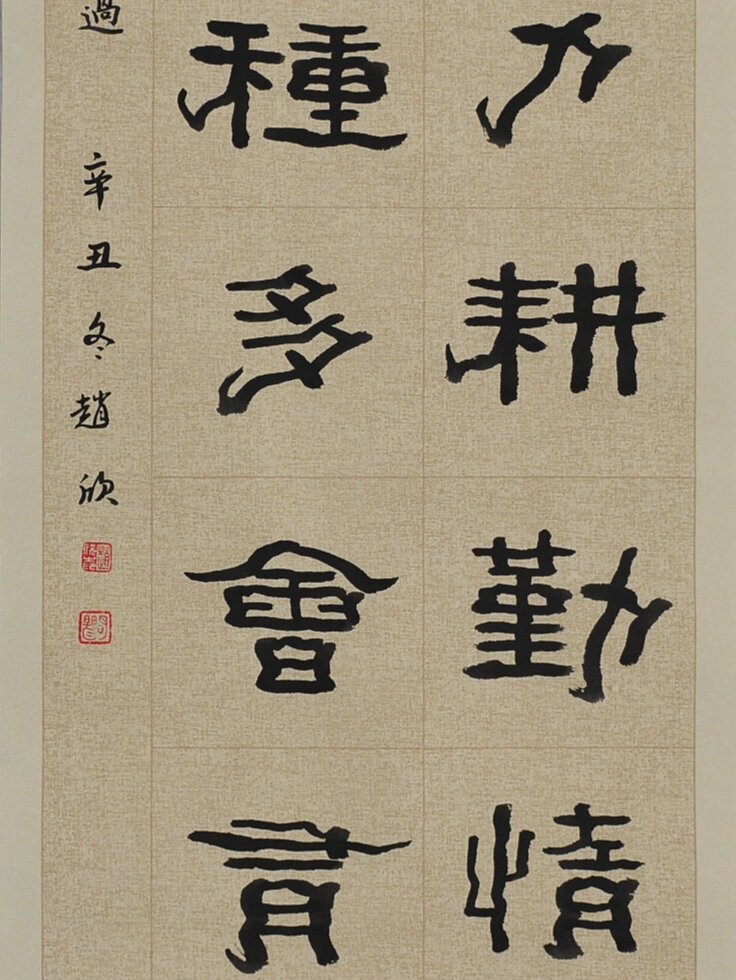 力耕勤情
種多會
過 辛丑冬趙欣